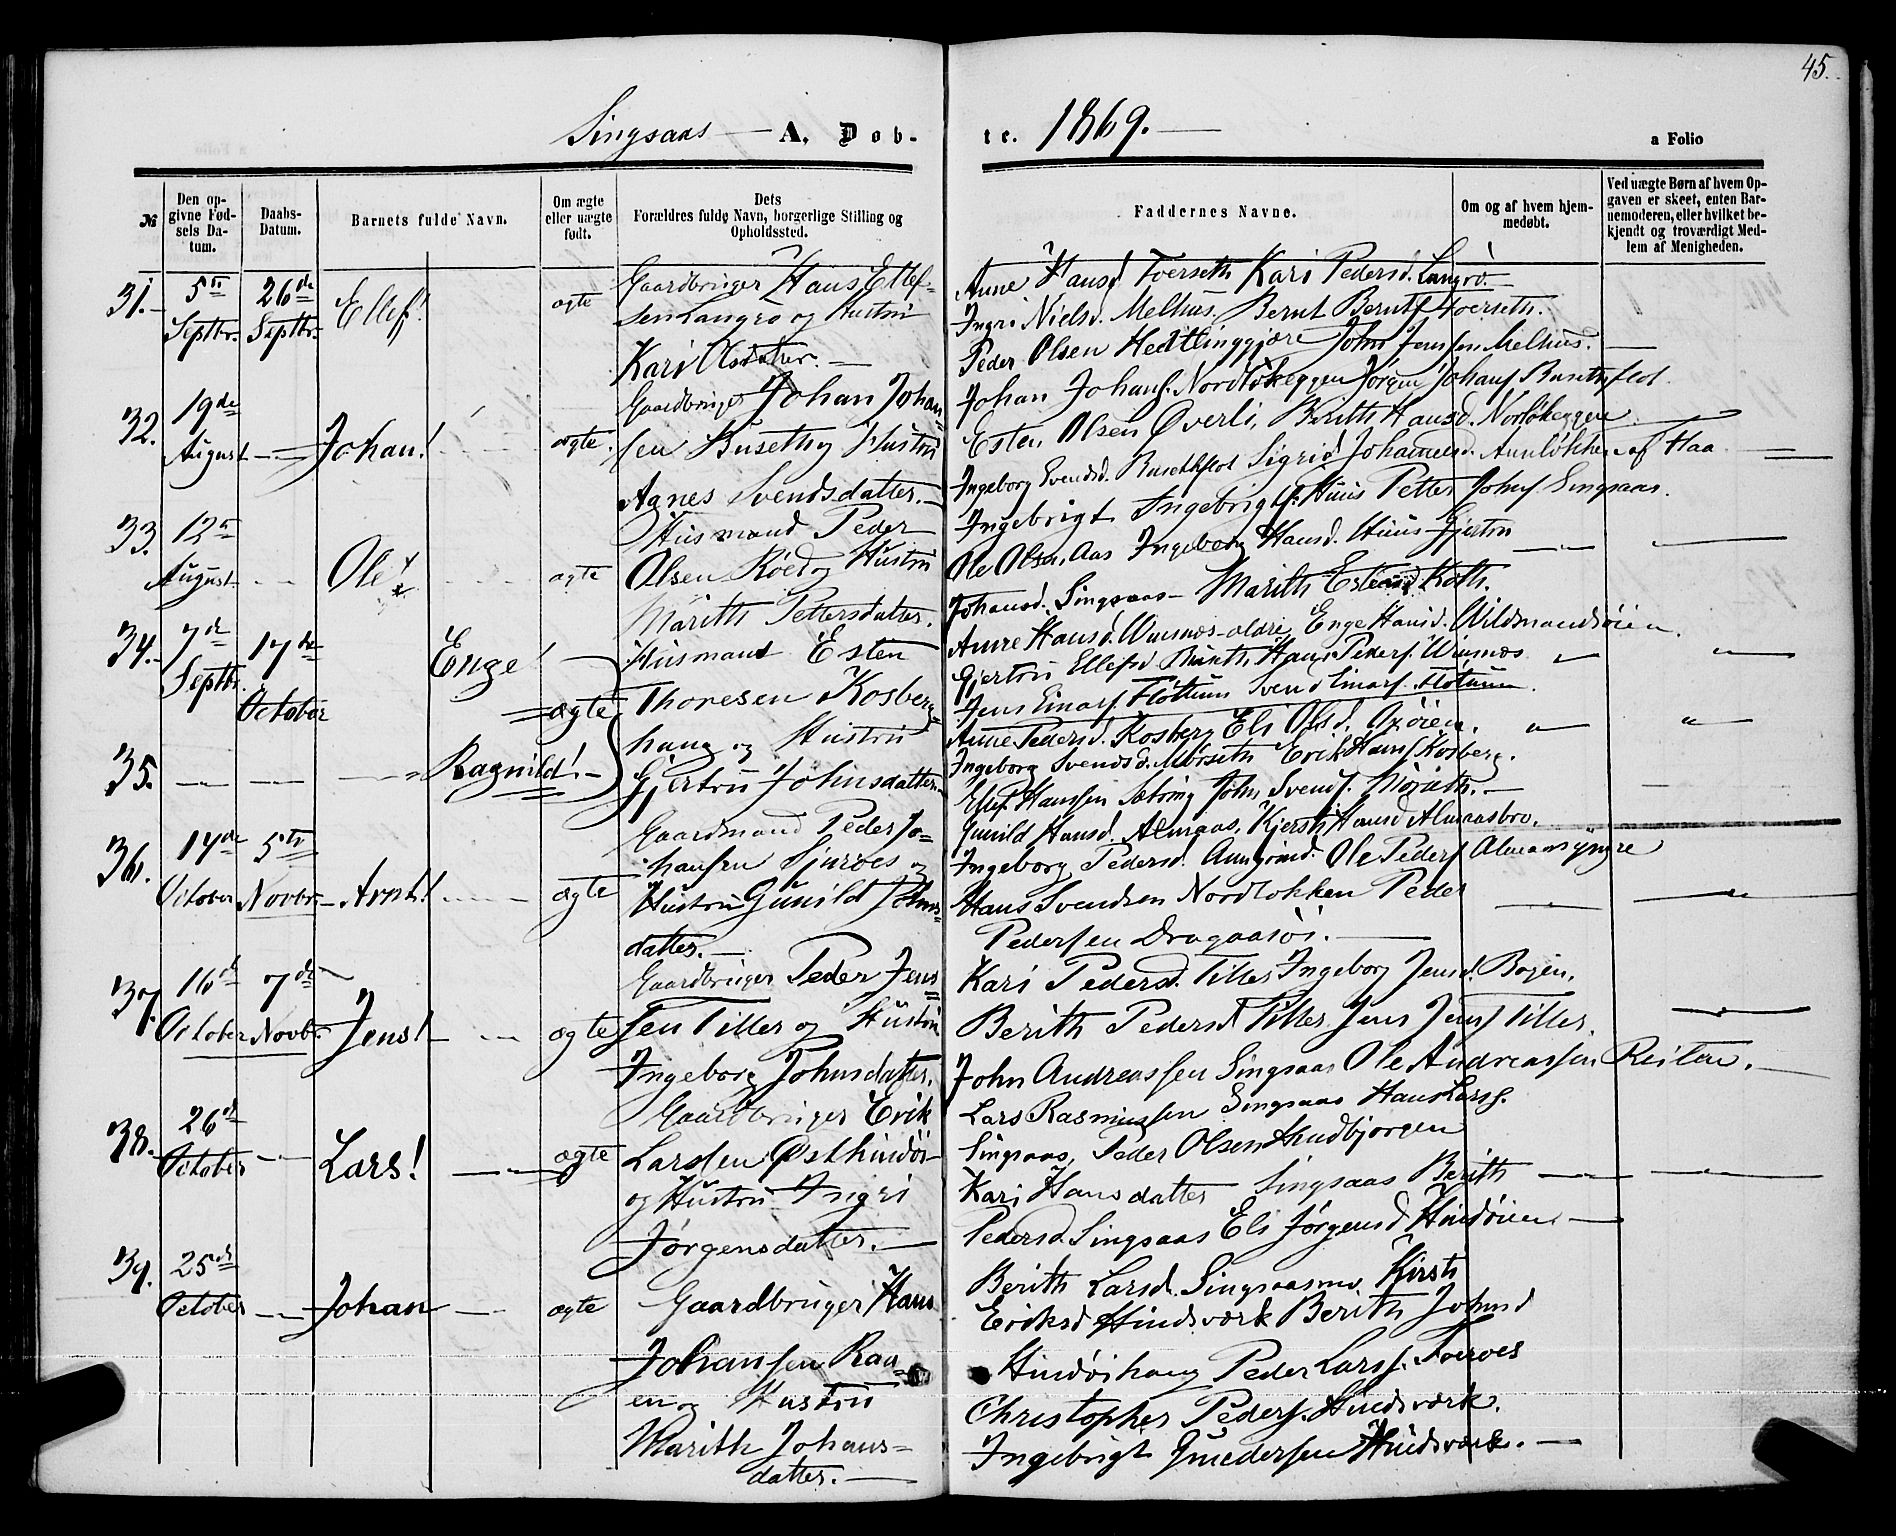 45.
Singsaas — A. Døb-
te. 1869. —
a Folio
№
Den op-
givne Fød-
sels Da-
tum.
Daabs-
Datum.
Barnets fulde Navn.
Om ægte
eller uægte
født.
Dets
Forældres fulde Navn, borgerlige Stilling og
Opholdssted.
Faddernes Navne.
Om og af hvem hjem-
medøbt.
Ved uægte Børn af hvem Op-
gaven er skeet, enten Bar-
nemoderen, eller hvilket be-
kjendt og troværdigt Med-
lem af Menigheden.
31.
5te
Septbr.
26de
Septbr.
Ellef!
ægte
Gaardbruger Hans Ellef-
sen Langrø og Hustru
Kari Olsdatter. —
Anne Hansd. Foerseth Kari Pedersd. Langrø.
Ingri Nielsd. Melhus. Bernt Berntf. Foerseth.
Peder Olsen John Jensen Melhus. —
32.
19de
August
Johan!
ægte.
Gaardbruger Johan Johan-
sen Buseth og Hustru
Agnes Svendsdatter. —
Johan Johansf. Nordløkeggen Jørgen Johansf
Esten Olsen Øverli, Berith Hansd.
Ingeborg Svendsd. Sigrid Johannesd. af Haa
33.
12te
August
Ole!
ægte
Husmand Peder
Olsen Røe og Hustru
Marith Pettersdatter.
Ingebrigt Ingebrigtf. Huus Petter Johnf. Singsaas.
Ole Olsen Aas Ingeborg Hansd. Huus Gjertru
Johansd. Singsaas — Marith Estensd. Koth.
34.
7de
Septbr.
17de
October
Enge!
ægte
Husmand Esten
Thoresen Kosberg-
haug og Hustru
Gjertru Johnsdatter
Anne Hansd. Enge Hansd. Wildmandsøien.
Gjertru Ellefsd Hans Pedersf. Winsnes
Jens Einarsf. Fløttum Svend Einarsf. Fløttum.
35.
Ragnild! —
Anne Pedersd. Kosberg Eli Olsd.
Ingeborg Svendsd. Morseth Erik Hansf Kosberg.
Hansen John Svendsf.
36.
14de
October
5te
Novbr.
Arnt!
ægte
Gaardmand Peder Jo-
hansen Sjurves og
Hustru Gunild Johns-
datter. —
Gunild Hansd. Almaas, Kjersti Hansd Almaasbro.
Ingeborg Pedersd. Ole Pedersf
Hans Svendsen Nordløkken Peder
Pedersen Dragaasøi. —
37.
16de
October
7de
Novbr.
Jens!
ægte
Gaardbruger Peder Jens-
sen Tiller og Hustru
Ingeborg Johnsdatter.
Kari Pedersd. Tiller Ingeborg Jensd. Bogen.
Berith Pedersd Tiller Jens Jensf Tiller.
John Andreassen Singsaas Ole Andreassen Reitan. —
38.
26de
October
Lars!
ægte
Gaardbruger Erik
Larsen Østhindøi
og Hustru Ingri
Jørgensdatter. —
Lars Rasmussen Singsaas Hans Larsf.
Singsaas, Peder Olsen Hindbjørgen
Kari Hansdatter Singsaas Berith
Pedersd. Singsaas Eli Jørgensd Hindøien —
39.
25de
October
Johan
ægte
Gaardbruger Hans
Johansen Rau-
en og Hustru
Marith Johans-
datter. —
Berith Larsd. Singsaasmo Kirsti
Eriksd Hindsværk Berith Johnsd
Hindøihaug Peder Larsf. Foerves
Christopher Pedersf. Hindsværk.
Ingebrigt Gundersen Hindsværk. —